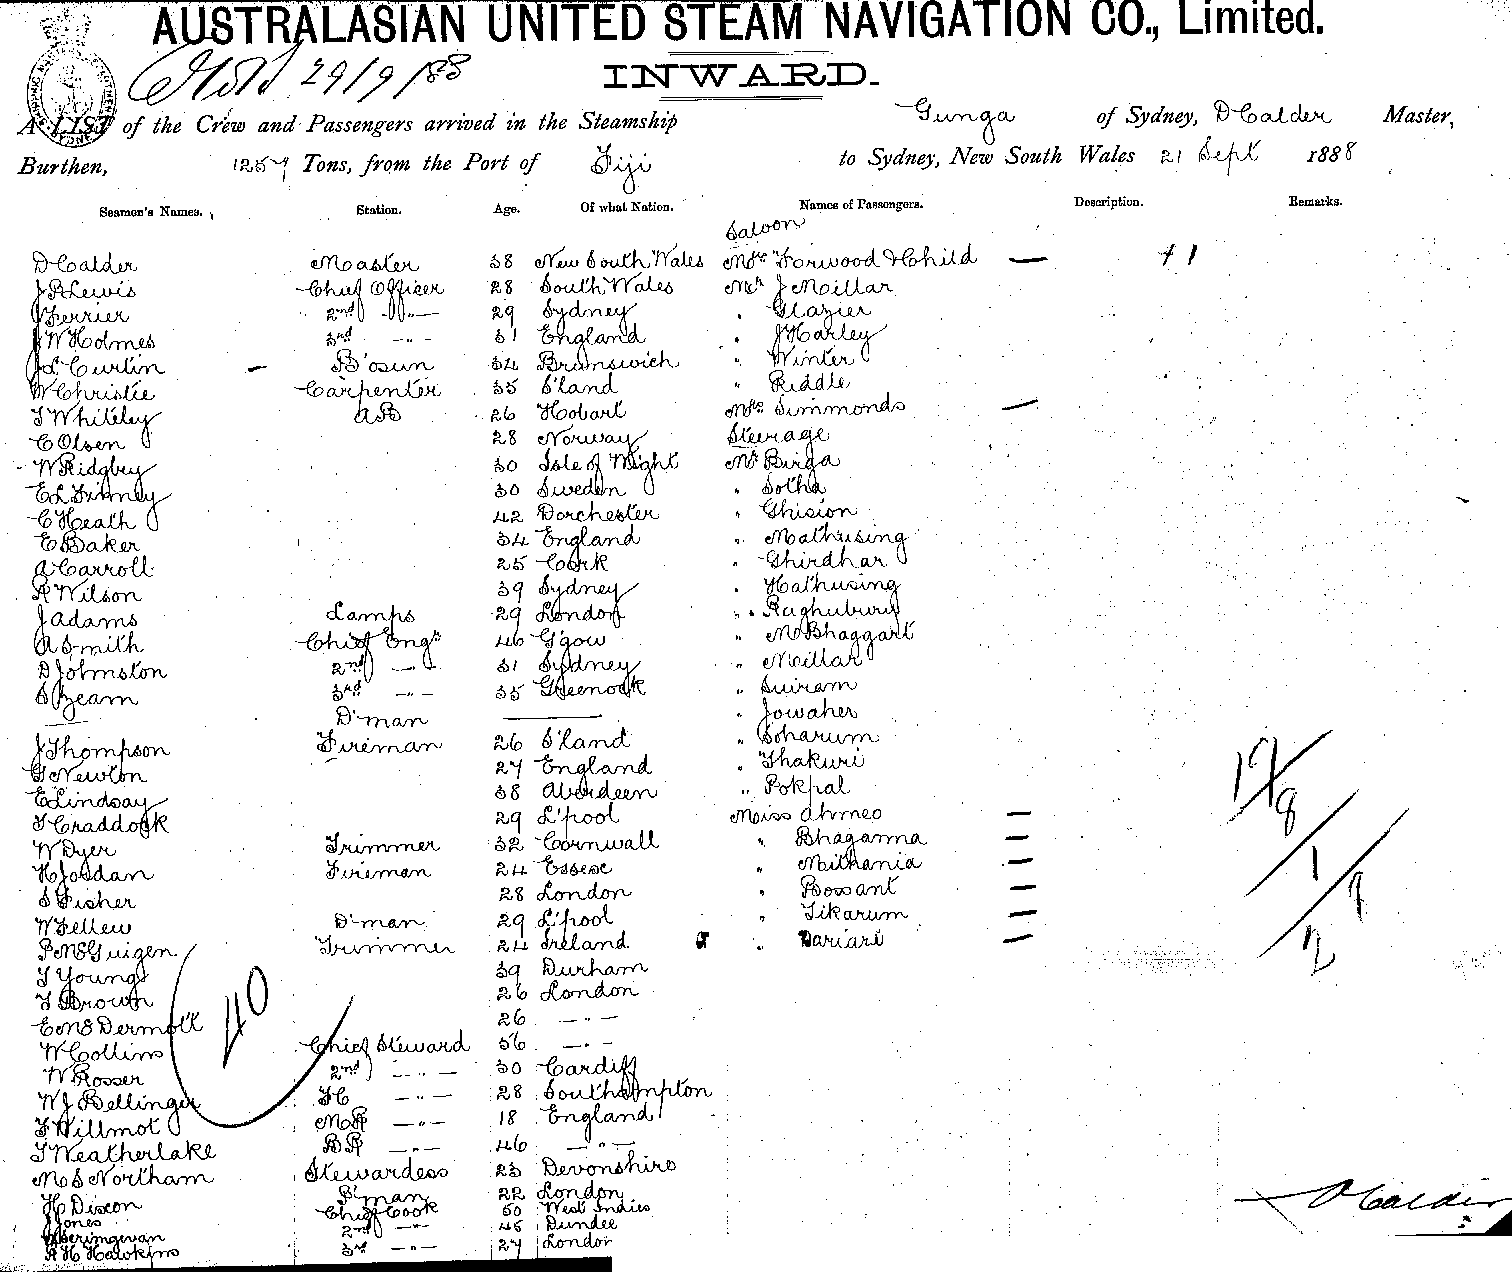 AUSTRALASIAN UNITED STEAM NAVIGATION CO., Limited.
29/9/88
INWARD.
A LIST of the Crew and Passengers arrived in the Steamship Gunga of Sydney, D Calder Master,
Burthen, 1257 Tons, from the Port of Fiji to Sydney, New South Wales 21 Sept 1888
Seamen's Names. Station. Age. Of what Nation. Names of Passengers. Description. Remarks.
Saloon
D Calder Master 38 New South Wales Mrs Forwood & Child — + 1
J B Lewis Chief Officer 28 South Wales Mr J Millar
J Ferrier 2nd —"— 29 Sydney " Glazier
J W Holmes 3rd —"— 31 England " J Harley
J L Curtin — B'osun 34 Brunswich " Winter
W Christie Carpenter 35 S'land " Riddle
T Whiteley AB 26 Hobart Mrs Simmonds —
C Olsen 28 Norway Steerage
W Ridgbey 30 Isle of Wight Mr Birga
E L Finney 30 Sweden " Sotha
C Heath 42 Dorchester " Ghision
E Baker 34 England " Mathusing
A Carroll 25 Cork " Ghirdhar
R Wilson 39 Sydney " Hathusing
J Adams Lamps 29 London " Raghubury
A Smith Chief Engr 46 G'gow " M Bhaggart
D Johnston 2nd —"— 31 Sydney " Millar
S Beam 3rd —"— 35 Greenock " Suiram
— D'man — " Jowaher
J Thompson Fireman 26 S'land " Soharum
G Newton 27 England " Thakuri
E Lindsay 38 Aberdeen " Pokpal
T Craddock 29 L'pool Miss Ahmeo —
W Dyer Trimmer 32 Cornwall " Bhaganna —
H Jordan Fireman 24 Essex " Mithania —
S Fisher 28 London " Bossant —
W Fellew D'man 29 L'pool " Tikarum —
P McGuigen Trimmer 24 Ireland " Dariari —
T Young 39 Durham
T Brown 26 London
E McDermott 26 —"—
W Collins Chief Steward 56 —"—
W Rosser 2nd —"— 30 Cardiff
W J Bellinger FC —"— 28 Southampton
F Willmot MR —"— 18 England
T Weatherlake BR —"— 46 —"—
M S Northam Stewardess 23 Devonshire
H Dixon P'man 22 London
J Jones Chief Cook 50 West Indies
2nd —"— 45 Dundee
R H Hawkins 3rd —"— 27 London
40
19/8
1/9
2
D Calder